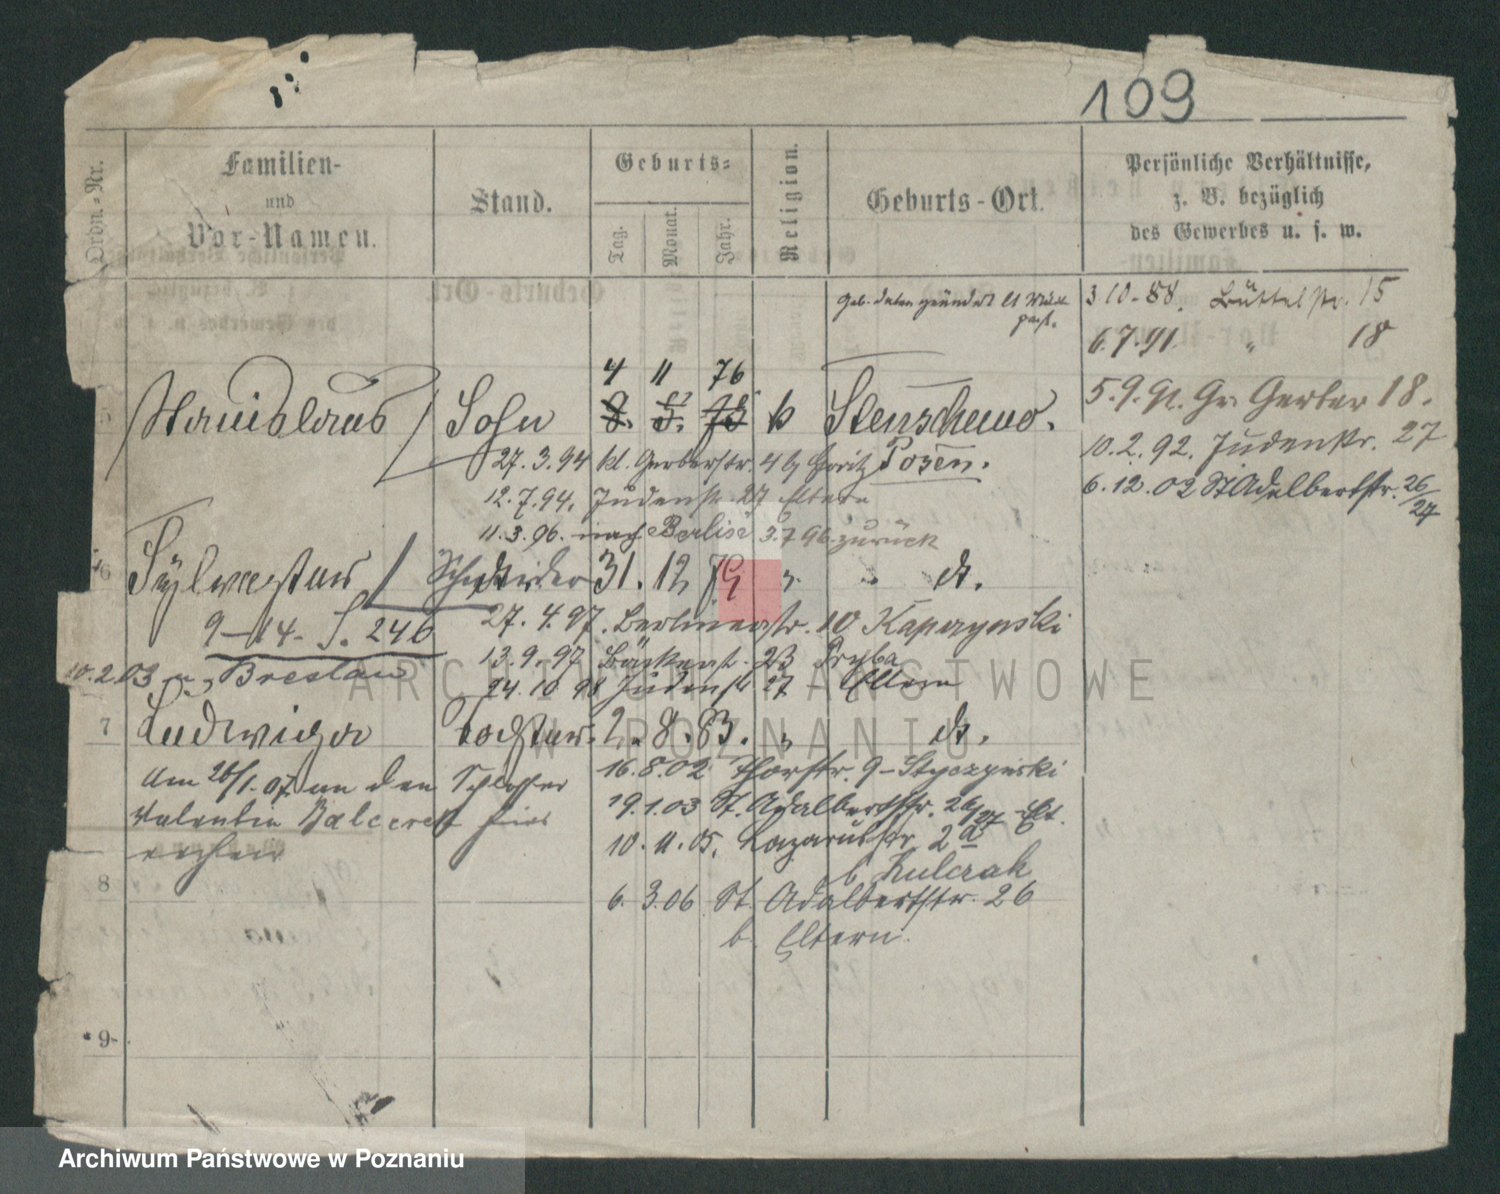 109
Ordn.-Nr.
Familien-
und
Vor-Namen.
Stand.
Geburts-
Tag.
Monat.
Jahr.
Religion.
Geburts-Ort.
Persönliche Verhältnisse,
z. B. bezüglich
des Gewerbes u. s. w.
Geb. daten geändert lt
3 10-88. Büttelstr. 15
6.7.91. " 18
4 11 76
5 Stanislaus Sohn 8. 5. 78 k Stenschewo.
5.9.91. Gr. Gerber 18.
27.3.94 kl. Gerberstr. 4 b Posen.
10.2.92. Judenstr. 27
12.7.94. Judenstr. 27 Eltern
6.12.02 St Adalbertstr. 26/27
11.3.96. nach Berlin 3.7 96. zurück
6 Sylvester Schneider 31. 12. 79 " " dt.
27.4.97. Berlinerstr. 10 Kaparynski
9-14- S. 246
13.9.97 Bäckerst. 23 Dryba
10.2.03 n. Breslau
24.10 98 Judenstr 27 Eltern
7 Ludwiga Tochter 2. 8. 83. " dt.
Am 26/1. 07 an den Schlosser
16.8.02 Thorstr. 9 - Styczynski
Valentin hier
19.1.03 St. Adalbertstr. 26/27 Elt.
10.11.05. Lazarusstr 2a
8
b. Kulczak
6. 3.06 St. Adalbertstr. 26
b. Eltern.
9
ARCHIWUM PAŃSTWOWE
W POZNANIU
Archiwum Państwowe w Poznaniu